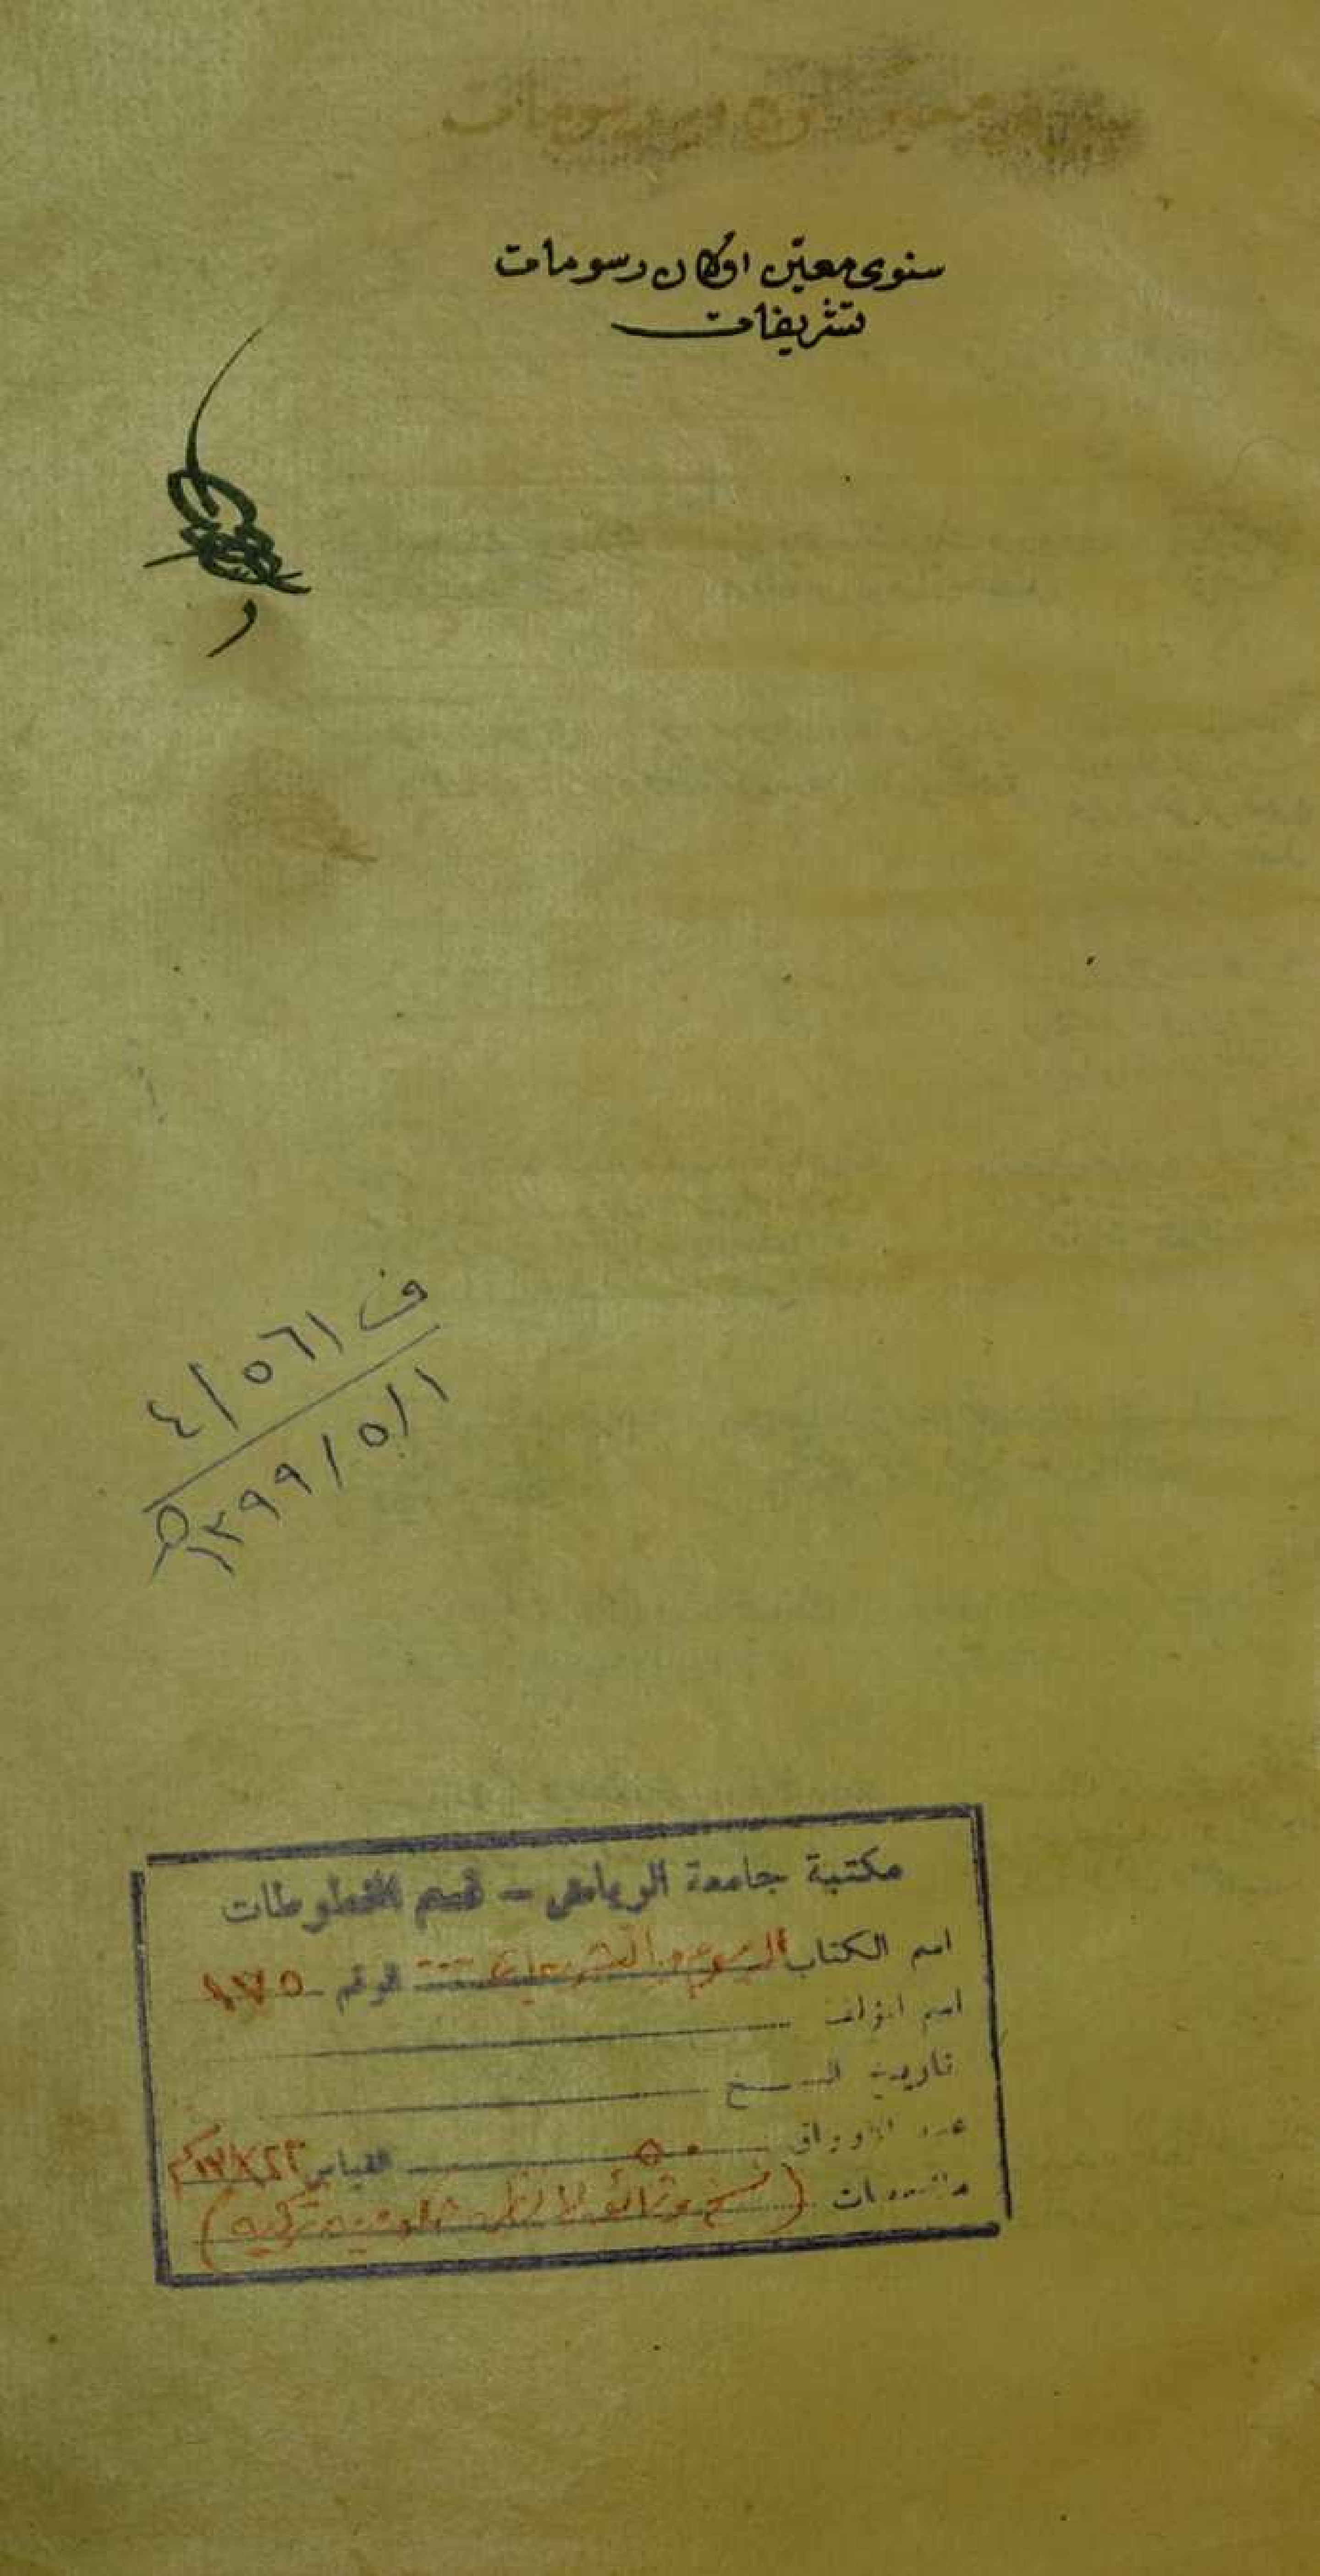 سنوى معيّن اولان رسومات
تشريفات
ف ٥٦١ / ٤
١ / ٥ / ١٣٩٩ هـ
مكتبة جامعة الرياض - قسم المخطوطات
اسم الكتاب الرسوم والتشريفات الرقم ١٨٧٥
اسم المؤلف
تاريخ النسخ
عدد الاوراق ٥٠ القياس ٢٢×١٣ كم
ملاحظات (نسخ وثائق